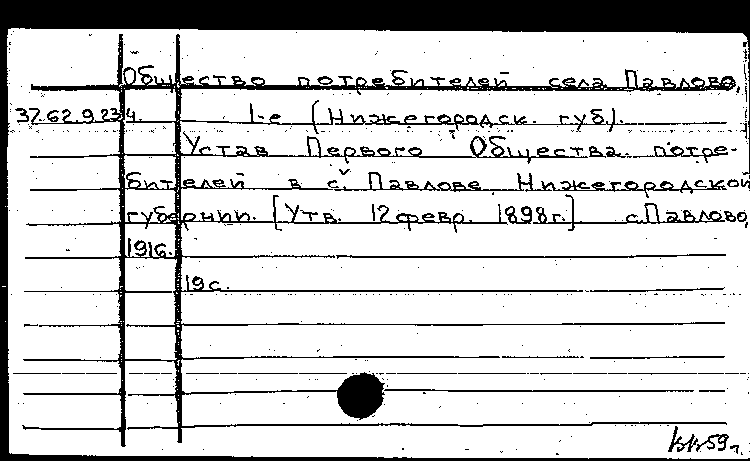 Общество потребителей села Павлово,
37.62.9.234. 1-е (Нижегородск. губ).
Устав Первого Общества потре-
бителей в с. Павлове Нижегородской
губернии. [Утв. 12 февр. 1898 г.] с. Павлово,
1916.
19 с.
59 г.